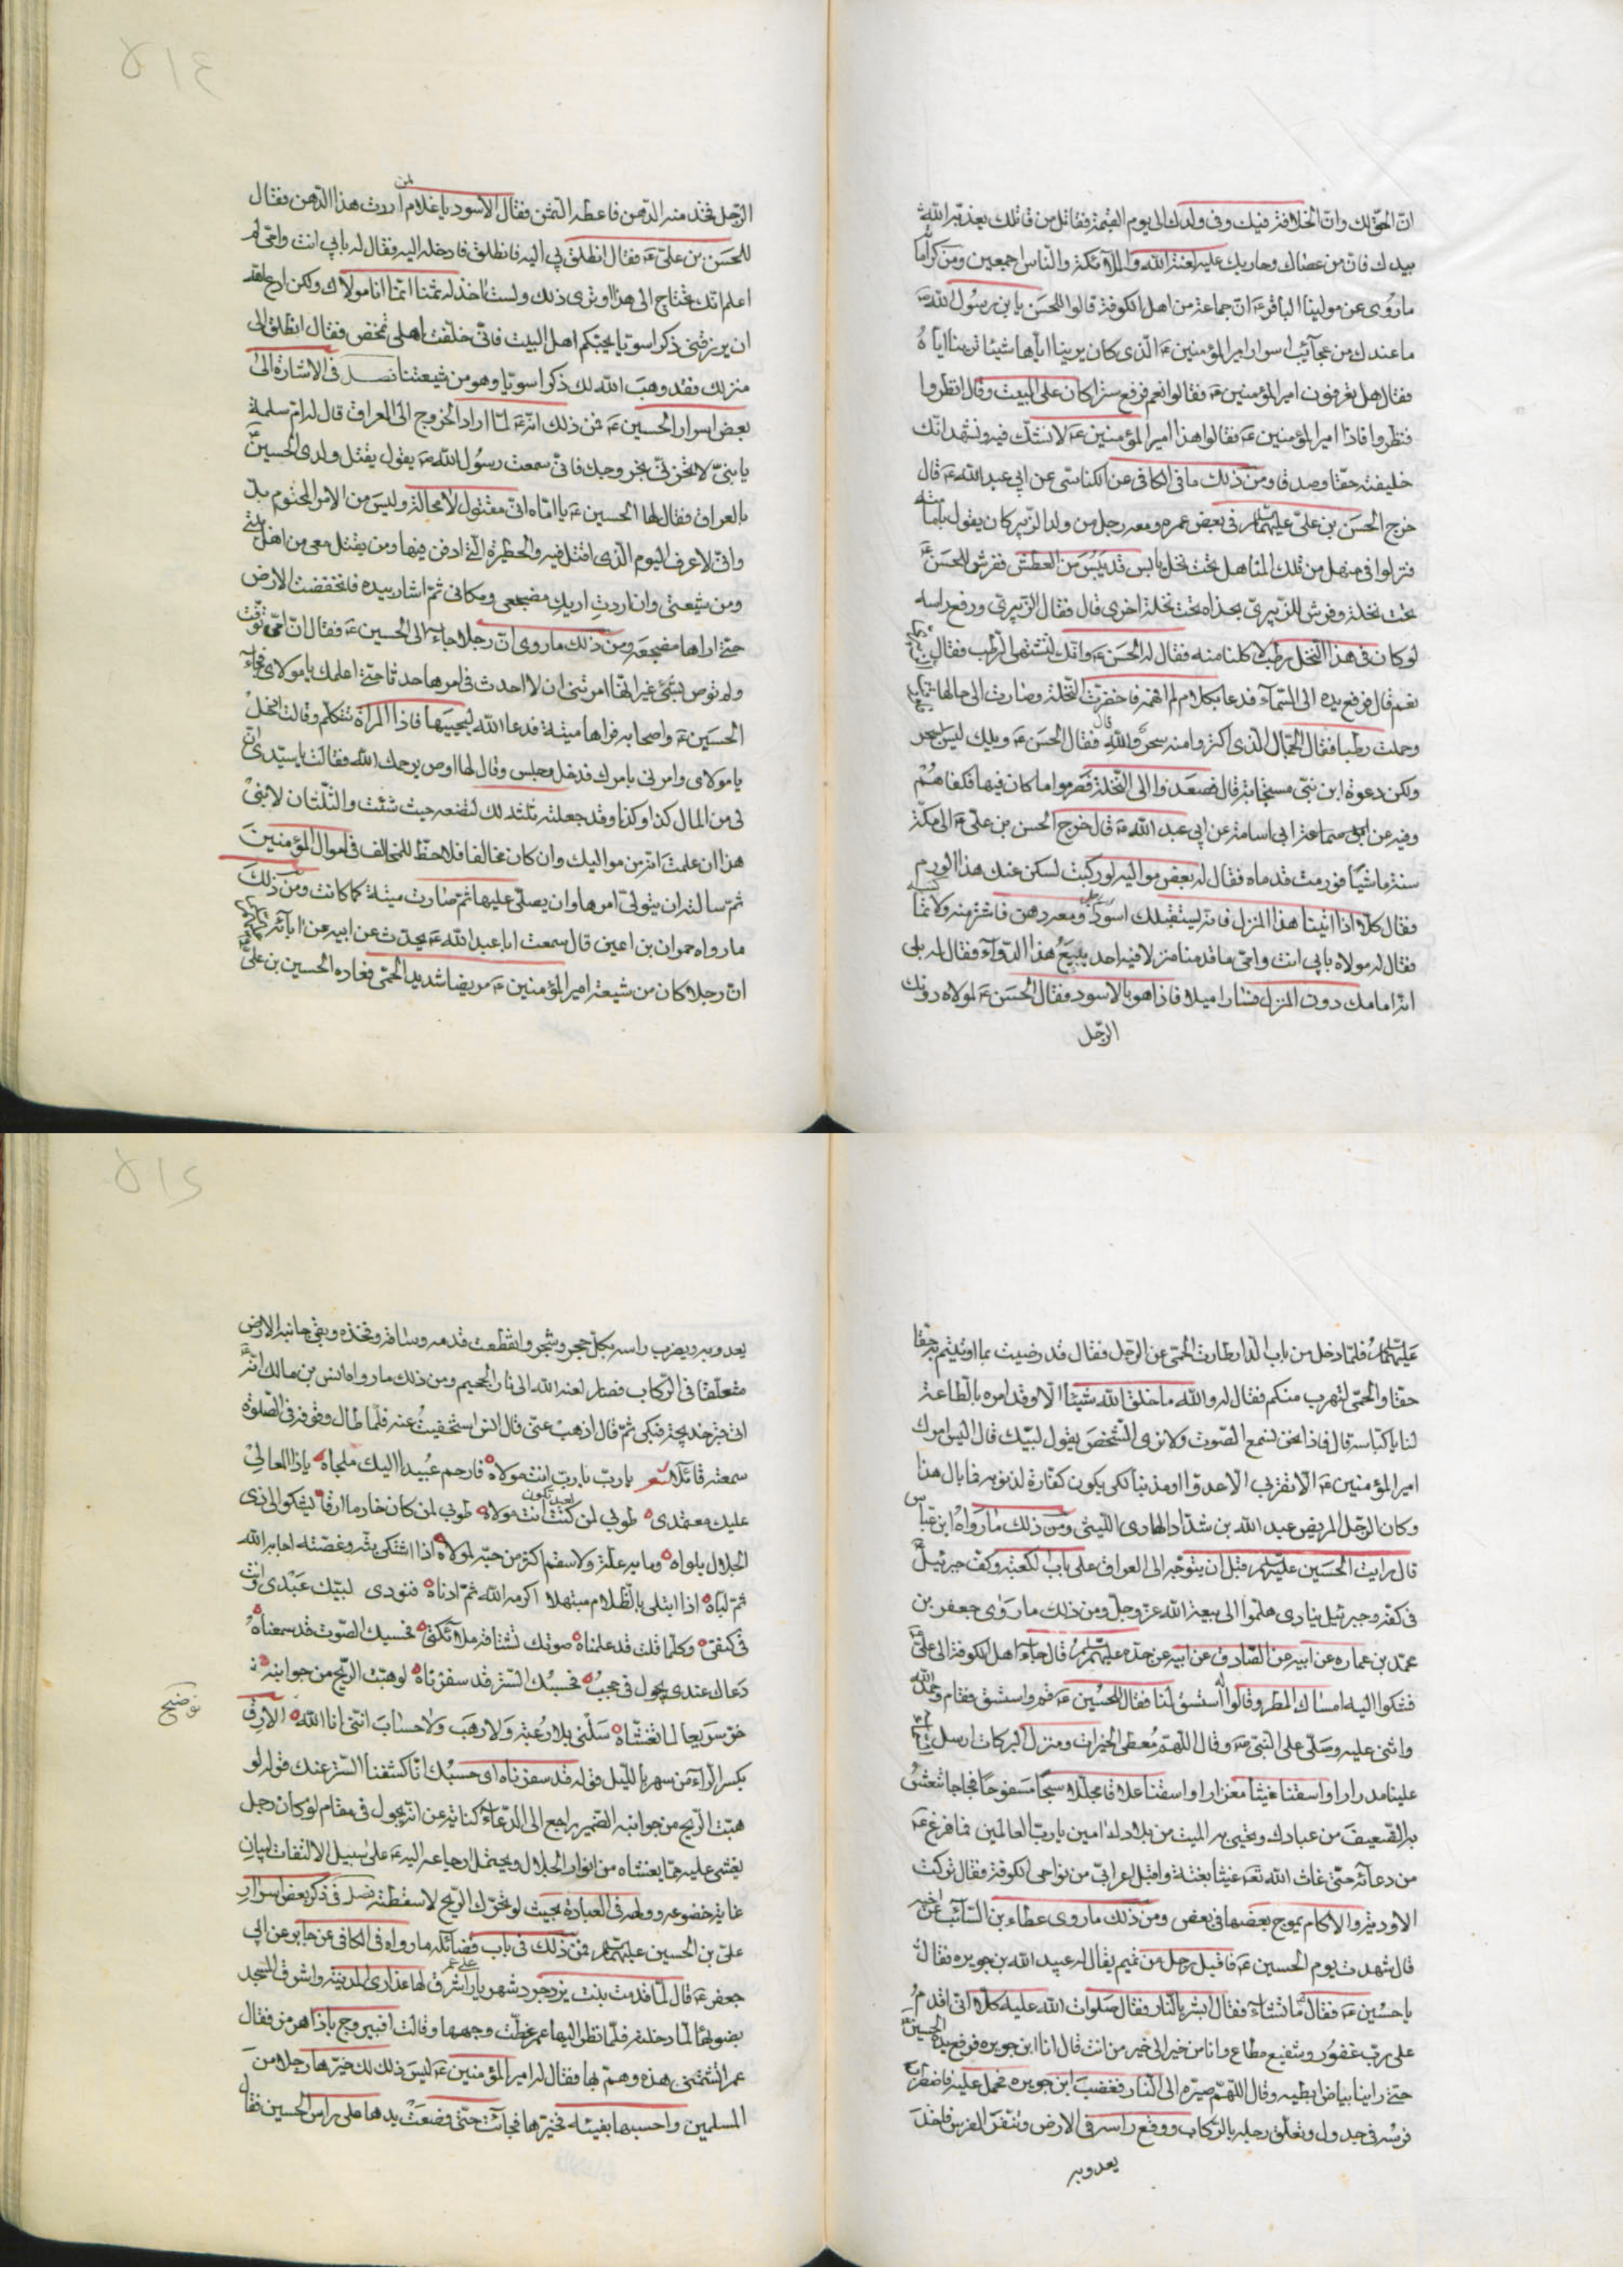 انّ الحقّ لك وانّ الخلافة فيك وفى ولدك الى يوم القيمة فقاتل من قاتلك يعذبه الله
بيدك فان من عصاك وحاربك عليه لعنة الله والملائكة والناس اجمعين ومن كراماته
ما روى عن مولينا الباقر ع انّ جماعة من اهل الكوفة قالوا للحسن يا بن رسول الله
ما عندك من عجآئب اسرار امير المؤمنين ع الّذى كان يرينا اياها شيئا ترينا اياه
فقال هل تعرفون امير المؤمنين ع فقالوا نعم فرفع سترا كان على البيت وقال انظروا
فنظروا فاذا امير المؤمنين ع فقالوا هذا امير المؤمنين ع لا نشك فيه ونشهد انّك
خليفته حقّا وصدقا ومن ذلك ما فى الكافى عن الكناسى عن ابى عبد الله ع قال
خرج الحسن بن علىّ عليهما فى بعض عمره ومعه رجل من ولد الزبير كان يقول بامامته
فنزلوا فى منهل من تلك المناهل تحت نخل يابس قد يبس من العطش ففرش للحسن
تحت نخلة وفرش للزّبيرىّ بحذاه تحت نخلة اخرى قال فقال الزبيرى ورفع راسه
لو كان فى هذا النّخل رطب لاكلنا منه فقال له الحسن ع وانّك لتشتهى الرّطب فقال
نعم قال فرفع يده الى السّمآء فدعا بكلام لم افهمه فاخضرّت النّخلة وصارت الى حالها
وحملت رطبا فقال الجمّال الّذى اكتروا منه سحر والله قال فقال الحسن ع ويلك ليس بسحر
ولكن دعوة ابن نبىّ مستجابة قال فصعدوا الى النّخلة فصرموا ما كان فيها فكفاهم
وفيه عن ابى اسامة عن ابى عبد الله ع قال خرج الحسن بن علىّ ع الى مكّة
سنة ماشيا فورمت قدماه فقال له بعض مواليه لو ركبت لسكن عنك هذا الورم
فقال كلّا اذا اتينا هذا المنزل فانّه يستقبلك اسود ومعه دهن فاشتر منه ولا تماكسه
فقال له مولاه بابى انت وامّى ما قدمنا منزلا فيه احد يبيع هذا الدّوآء فقال له بلى
انّه امامك دون المنزل فسارا ميلا فاذا هو بالاسود فقال الحسن ع لمولاه دونك
الرّجل
الرّجل فخذ منه الدّهن فاعطه الثمن فقال الاسود يا غلام لمن اردت هذا الدّهن فقال
للحسن بن علىّ ع فقال انطلق بى اليه فانطلق فادخله اليه فقال له بابى انت وامّى لم
اعلم انّك تحتاج الى هذا اوترى ذلك ولست اخذ له ثمنا انّما انا مولاك ولكن ادع الله
ان يرزقنى ذكرا سويّا يحبّكم اهل البيت فانّى خلّفت اهلى تمخض فقال انطلق الى
منزلك فقد وهب الله لك ذكرا سويّا وهو من شيعتنا فصل فى الاشارة الى
بعض اسرار الحسين ع فمن ذلك انّه ع لمّا اراد الخروج الى العراق قال له امّ سلمة
يا بنىّ لا تحزنّى بخروجك فانّى سمعت رسول الله ص يقول يقتل ولدى الحسين
بالعراق فقال لها الحسين ع يا امّاه انّى مقتول لا محالة وليس من الامر المحتوم بدّ
وانّى لاعرف اليوم الّذى اقتل فيه والحفرة الّتى ادفن فيها ومن يقتل معى من اهل بيتى
ومن شيعتى وان اردت اريك مضجعى ومكانى ثمّ اشار بيده فانخفضت الارض
حتّى اراها مضجعه ومن ذلك ما روى انّ رجلا جاء الى الحسين ع فقال انّ امّى توفّيت
ولم توص بشىء غير انّها امرتنى ان لا احدث فى امرها حدثا حتّى اعلمك يا مولاى فجاء
الحسين ع واصحابه فراها ميتة فدعا الله ليحييها فاذا المراة تتكلّم وقالت ادخل
يا مولاى وامرنى بامرك فدخل وجلس وقال لها اوص يرحمك الله فقالت يا سيّدى انّ
لى من المال كذا وكذا وقد جعلت ثلثه لك لتضعه حيث شئت والثّلثان لابنى
هذا ان علمت انّه من مواليك وان كان مخالفا فلا حظّ للمخالف فى اموال المؤمنين
ثمّ سالته ان يتولّى امرها وان يصلّى عليها ثمّ صارت ميتة كما كانت ومن ذلك
ما رواه حمران بن اعين قال سمعت ابا عبد الله ع يحدّث عن ابيه عن ابآئه
انّ رجلا كان من شيعة امير المؤمنين ع مريضا شديد الحمّى فعاده الحسين بن علىّ
عليهما فلمّا دخل من باب الدّار طارت الحمّى عن الرّجل فقال قد رضيت بما اوتيتم به حقّا
حقّا والحمّى لتهرب منكم فقال له والله ما خلق الله شيئا الّا وقد امره بالطّاعة
لنا يا كباسة قال فاذا نحن نسمع الصّوت ولا نرى الشّخص يقول لبّيك قال اليس امرك
امير المؤمنين ع الّا تقربى الّا عدوّا او مذنبا لكى يكون كفّارة لذنوبه فما بال هذا
وكان الرّجل المريض عبد الله بن شدّاد الهادى اللّيثى ومن ذلك ما رواه ابن عباس
قال رايت الحسين عليه قبل ان يتوجّه الى العراق على باب الكعبة وكفّ جبرئيل
فى كفّه وجبرئيل ينادى هلمّوا الى بيعة الله عزّ وجلّ ومن ذلك ما روى جعفر بن
محمّد بن عماره عن ابيه عن الصّادق عن ابيه عن جدّه عليهم قال جاء اهل الكوفة الى علىّ
فشكوا اليه امساك المطر وقالوا له استسق لنا فقال للحسين ع قم واستسق فقام وحمد الله
واثنى عليه وصلّى على النّبىّ ص وقال اللّهمّ معطى الخيرات ومنزل البركات ارسل
علينا مدرارا واسقنا غيثا مغزارا واسقنا غدقا مجلّلا سحّا سفوحا فجاجا تنعش
به الضّعيف من عبادك وتحيى به الميت من بلادك امين يا ربّ العالمين فما فرغ ع
من دعآئه حتّى غاث الله تع غيثا بغتة واقبل اعرابىّ من نواحى الكوفة فقال تركت
الاودية والاكام يموج بعضها فى بعض ومن ذلك ما روى عطاء بن السّآئب عن اخيه
قال شهدت يوم الحسين ع فاقبل رجل من تميم يقال له عبيد الله بن جويره فقال
يا حسين ع فقال ما تشاء فقال ابشر بالنار فقال صلوات الله عليه كلّا انّى اقدم
على ربّ غفور وشفيع مطاع وانا من خير الى خير من انت قال انا ابن جويره فرفع يده الحسين
حتّى راينا بياض ابطيه وقال اللّهمّ صيّره الى النّار فغضب ابن جويره فحمل عليه فاضطرب
فرسه فى جدول وتعلّق رجله بالرّكاب ووقع راسه فى الارض ونفر الفرس فاخذ
يعدو به
يعدو به ويضرب راسه بكلّ حجر وشجر وانقطعت قدمه وساقه وفخذه وبقى جانبه الارض
متعلّقا فى الرّكاب فصار لعنه الله الى نار الجحيم ومن ذلك ما رواه انس بن مالك انّه
اتى قبر خديجة فبكى ثمّ قال اذهب عنّى قال انس استخفيت عنه فلمّا طال وقوفه فى الصّلوة
سمعته قائلا شعر يا ربّ يا ربّ انت مولاه فارحم عبيدا اليك ملجاه يا ذا المعالى
عليك معتمدى طوبى لمن كنت انت مولاه طوبى لمن كان خادما ارقا يشكو الى ذى
الجلال بلواه وما به علّة ولا سقم اكثر من حبّه لمولاه اذا اشتكى بثّه وغصّته اجابه الله
ثمّ لبّاه اذا ابتلى بالظّلام مبتهلا اكرمه الله ثمّ ادناه فنودى لبّيك عبدى وانت
فى كنفى وكلّما قلت قد علمناه صوتك تشتاقه ملآئكتى فحسبك الصّوت قد سمعناه
دعاك عندى يجول فى حجب فحسبك السّتر قد سفرناه لو هبّت الرّيح من جوانبه
خرّ سريعا لما تغشّاه سلنى بلا رغبة ولا رهب ولا حساب انّنى انا الله الارق
توضيح
بكسر الرّآء من سهر باللّيل قوله قد سفرناه اى حسبك انّا كشفنا السّتر عنك قوله لو
هبّت الرّيح من جوانبه الضّمير راجع الى الدّعاء كناية عن انّه يجول فى مقام لو كان رجل
يغشى عليه ممّا يغشاه من انوار الجلال ويحتمل ارجاعه اليه ع على سبيل الالتفات لبيان
غاية خضوعه وولهه فى العبادة بحيث لو تحرّك الرّيح لاسقطته فصل فى ذكر بعض اسرار
علىّ بن الحسين عليهما فمن ذلك فى باب فضآئله ما رواه فى الكافى عن جابر عن ابى
جعفر ع قال لمّا قدمت بنت يزدجرد شهريار على عمر اشرف لها عذارى المدينة واشرق المسجد
بضوئها لمّا دخلته فلمّا نظر اليها عمر غطّت وجهها وقالت اف بيروج باذا هرمز فقال
عمر اتشتمنى هذه وهمّ بها فقال له امير المؤمنين ع ليس ذلك لك خيّرها رجلا من
المسلمين واحسبها بفيئه فخيّرها فجآئت حتّى وضعت يدها على راس الحسين فقال